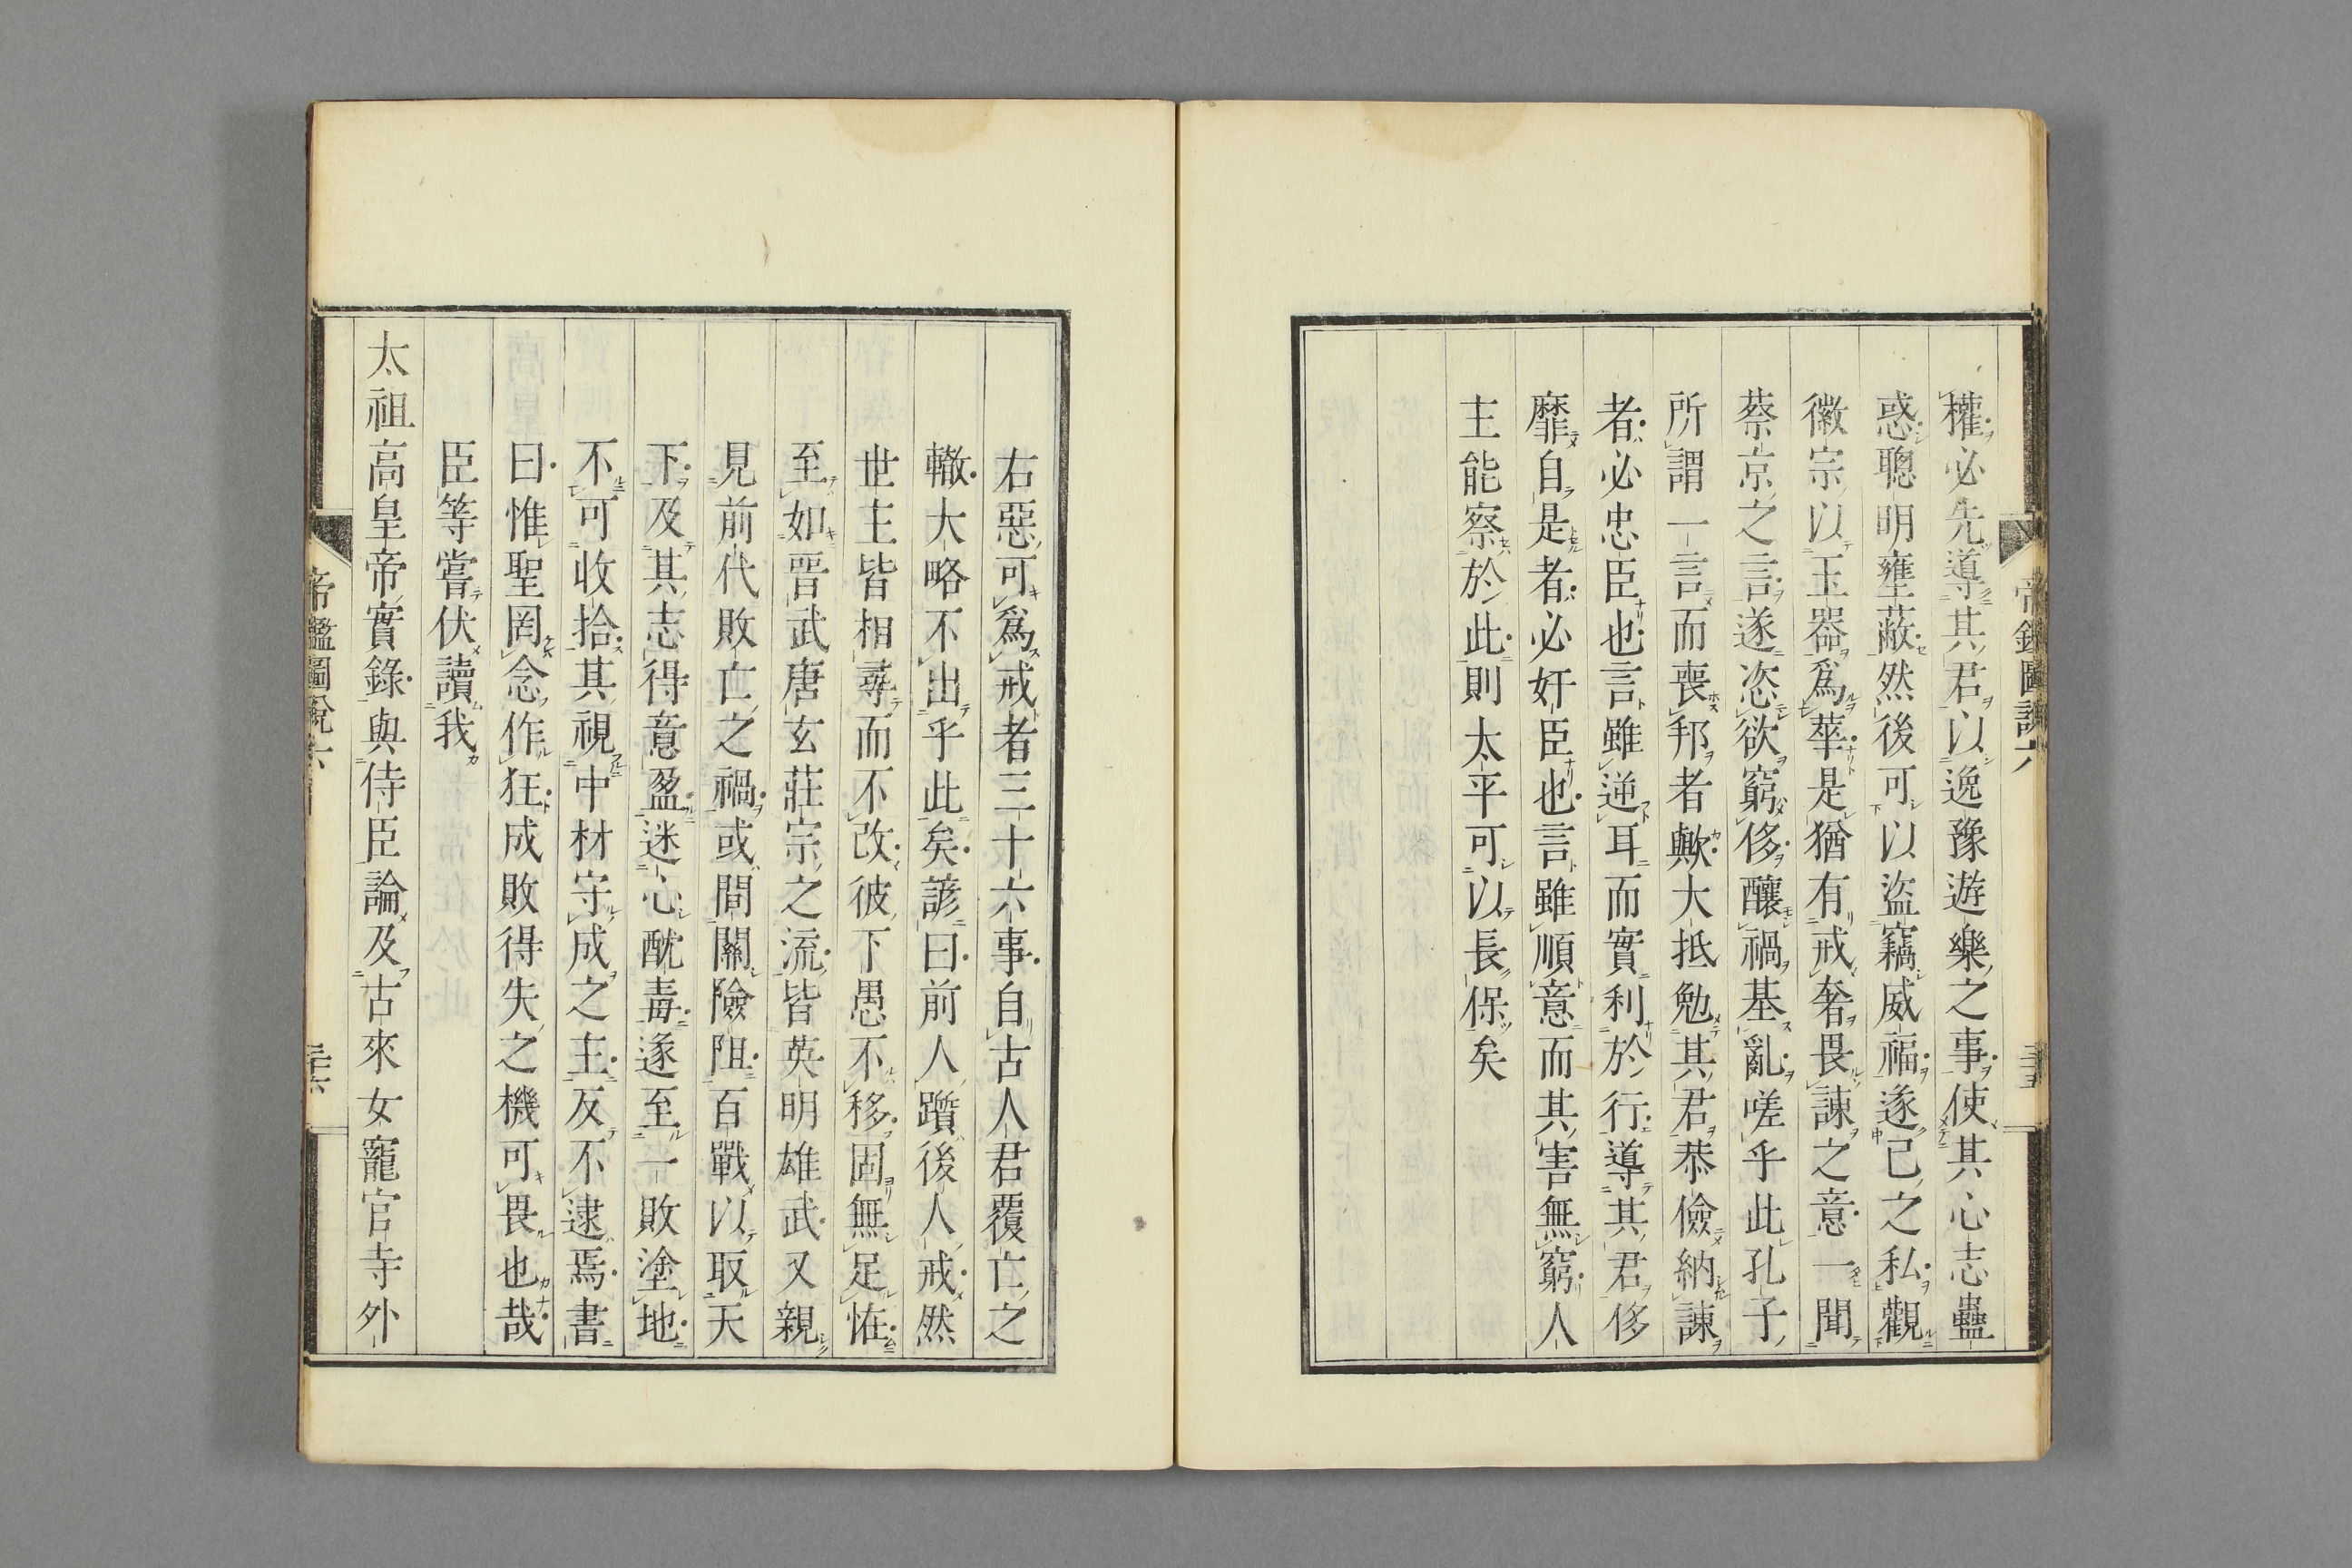 帝鑑圖說六
三十五
權必先導其君以逸豫遊樂之事使其心志蠱
惑聰明壅蔽然後可以盜竊威福遂己之私觀
徽宗以玉器爲華是猶有戒奢畏諫之意一聞
蔡京之言遂恣欲窮侈釀禍基亂嗟乎此孔子
所謂一言而喪邦者歟大抵勉其君恭儉納諫
者必忠臣也言雖逆耳而實利於行導其君侈
靡自是者必奸臣也言雖順意而其害無窮人
主能察於此則太平可以長保矣
右惡可爲戒者三十六事自古人君覆亡之
轍大略不出乎此矣諺曰前人躓後人戒然
世主皆相尋而不改彼下愚不移固無足怪
至如晉武唐玄莊宗之流皆英明雄武又親
見前代敗亡之禍或間關險阻百戰以取天
下及其志得意盈迷心酖毒遂至一敗塗地
不可收拾其視中材守成之主反不逮焉書
曰惟聖罔念作狂成敗得失之機可畏也哉
臣等嘗伏讀我
太祖高皇帝實錄與侍臣論及古來女寵宦寺外
帝鑑圖說六
三十六